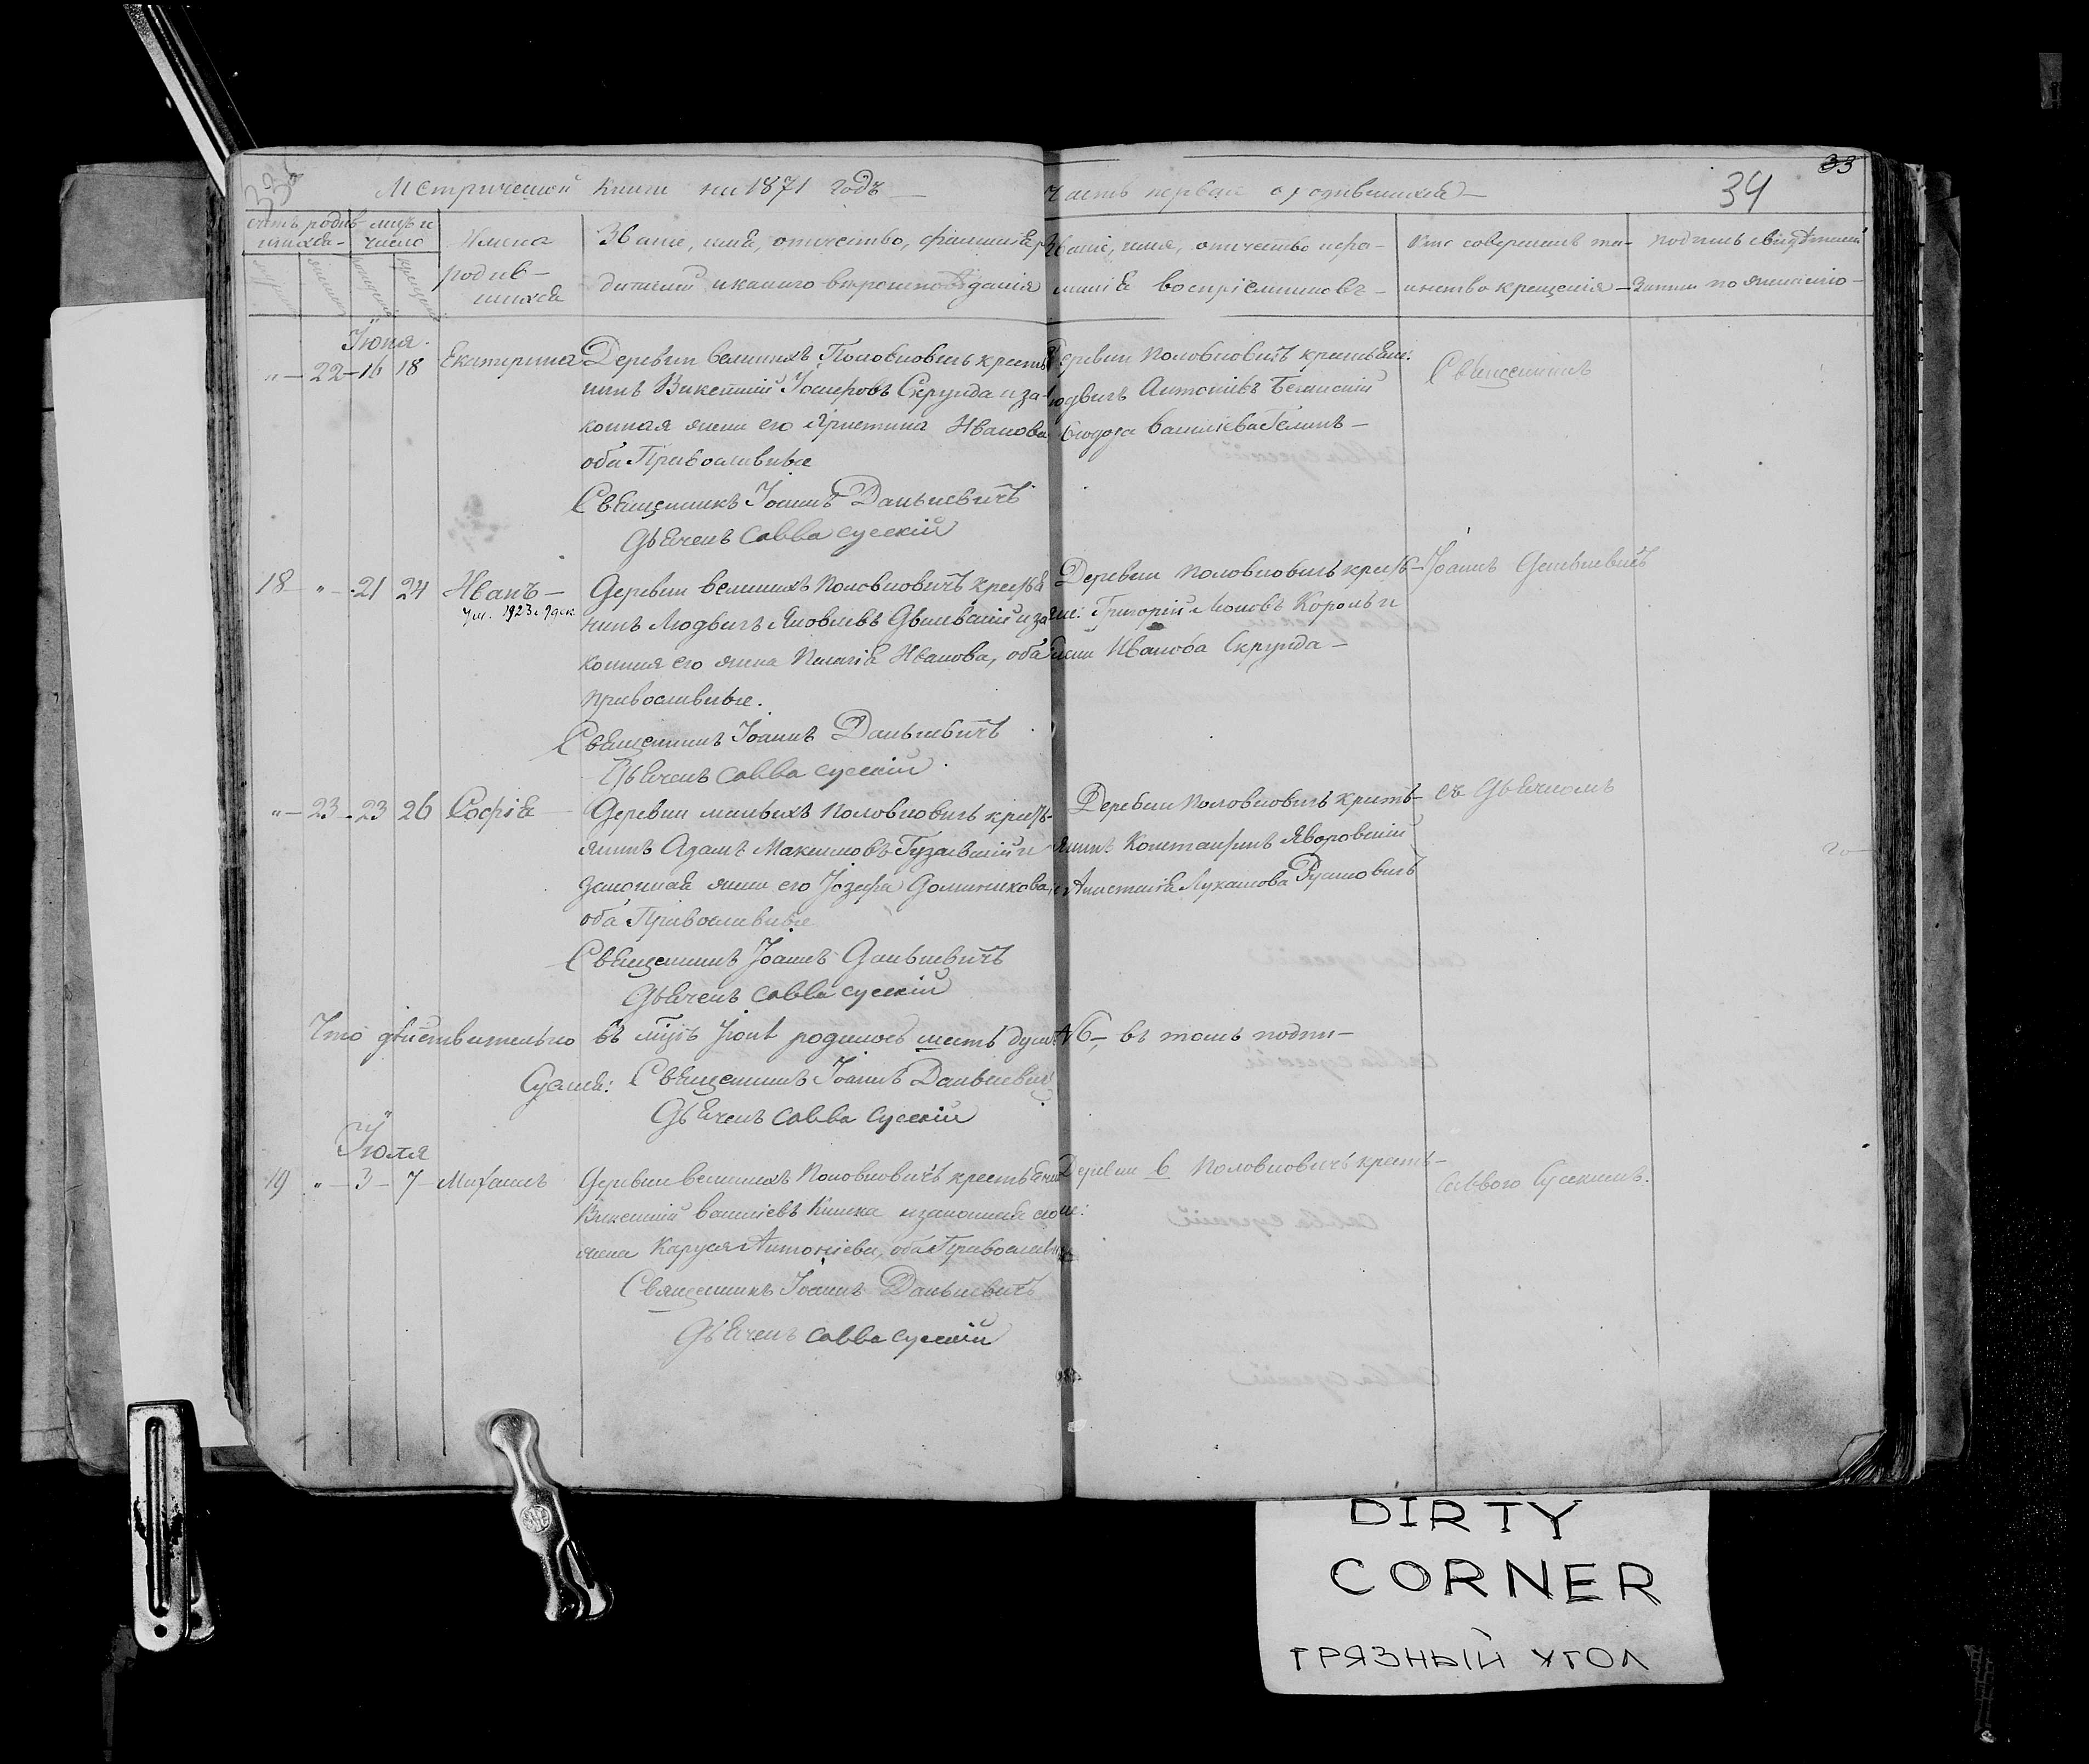 33
Метрической книги на 1871 годъ
Часть первая о родившихся
34
33
счетъ родив- мцъ и
шихся число
Имена
родив-
шихся
Званіе, имя, отчество, фамилія ро-
дителей и какого вѣроисповѣданія
Званіе, имя, отечество и фа-
милія воспріемниковъ
Кто совершилъ та-
инство крещенія
подпись свидѣтелей
записи по желанію
Іюня
" 22 16 18 Екатерина Деревни великихъ Половковичъ крестья-
нинъ Викентий Іосифовъ Скрунда и за-
конная жена его Христина Иванова
оба Православные
Священникъ Іоаннъ Данькевичъ
Дьячекъ Савва Сусскій
Деревни Половковичъ крестьян:
Людвигъ Антоніевъ
Васильева
Священникъ
18 " 21 24 Иванъ Деревни великихъ Половковичъ крестья-
Ум. 1923 г. 9 дек.
нинъ Людвигъ Яковлевъ и за-
конная его жена Пелагія Иванова, оба
православные.
Священникъ Іоаннъ Данькевичъ
Дьячекъ Савва Сусскій
Деревни Половковичъ кресть-
Григорій Король и
Иванова Скрунда
Іоаннъ Данькевичъ
" 23 23 26 Софія Деревни малыхъ Половковичъ кресть-
янинъ Адамъ Максимовъ и
законная жена его Іозефа Доминикова,
оба Православные
Священникъ Іоаннъ Данькевичъ
Дьячекъ Савва Сусскій
Деревни Половковичъ кресть-
янинъ Константинъ Яворовский
и Анастасія Лукашова
съ Дьячкомъ
Что дѣйствительно въ мцѣ Іюнѣ родилось шесть душъ № 6, въ томъ подпи-
суемся: Священникъ Іоаннъ Данькевичъ
Дьячекъ Савва Сусскій
Іюля
19 " 3 7 Михаилъ Деревни великихъ Половковичъ крестьянинъ
Викентий Васильевъ и законная его
жена Антоніева, оба Православные
Священникъ Іоаннъ Данькевичъ
Дьячекъ Савва Сусскій
Деревни в. Половковичъ кресть-
Саввою Сусскимъ.
DIRTY
CORNER
ГРЯЗНЫЙ УГОЛ